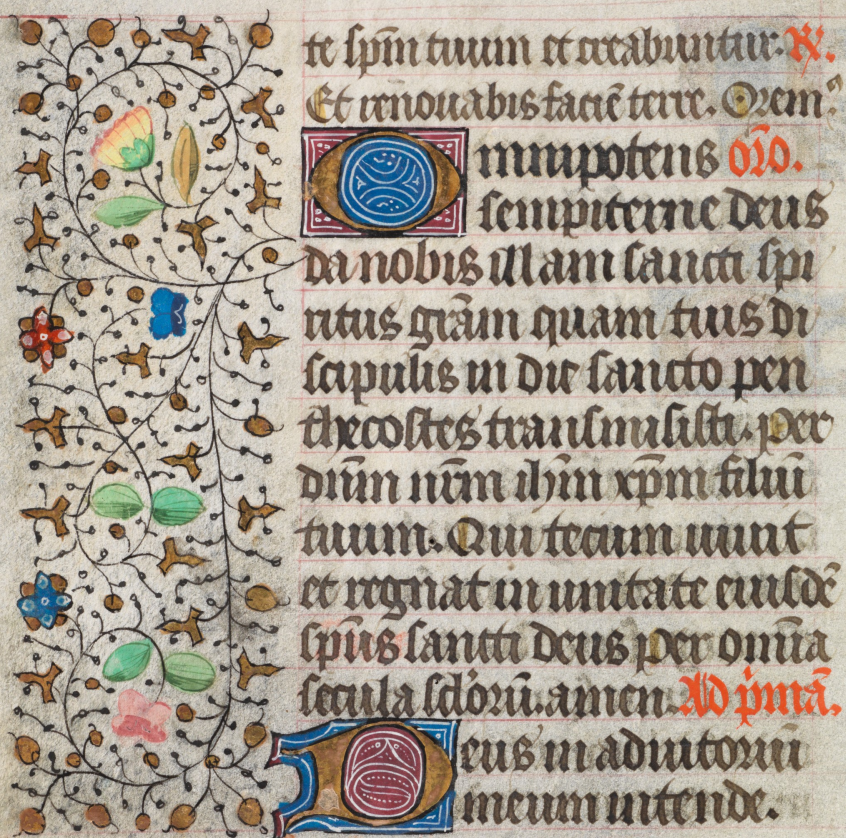 te sp̄m tuum et creabuntur. R̸.
Et renouabis faciē terre. Orem᷒
Omnipotens or̄o.
sempiterne deus
da nobis illam sancti spi
ritus gr̄am quam tuis di
scipulis in die sancto pen
thecostes transmisisti. per
dn̄m nr̄m ihm̄ xp̄m filiū
tuum. Qui tecum uiuit
et regnat in unitate eiusdē
sp̄us sancti deus per om̄ia
secula sclōrū. amen. Ad p̄mā.
Deus in adiutoriū
meum intende.